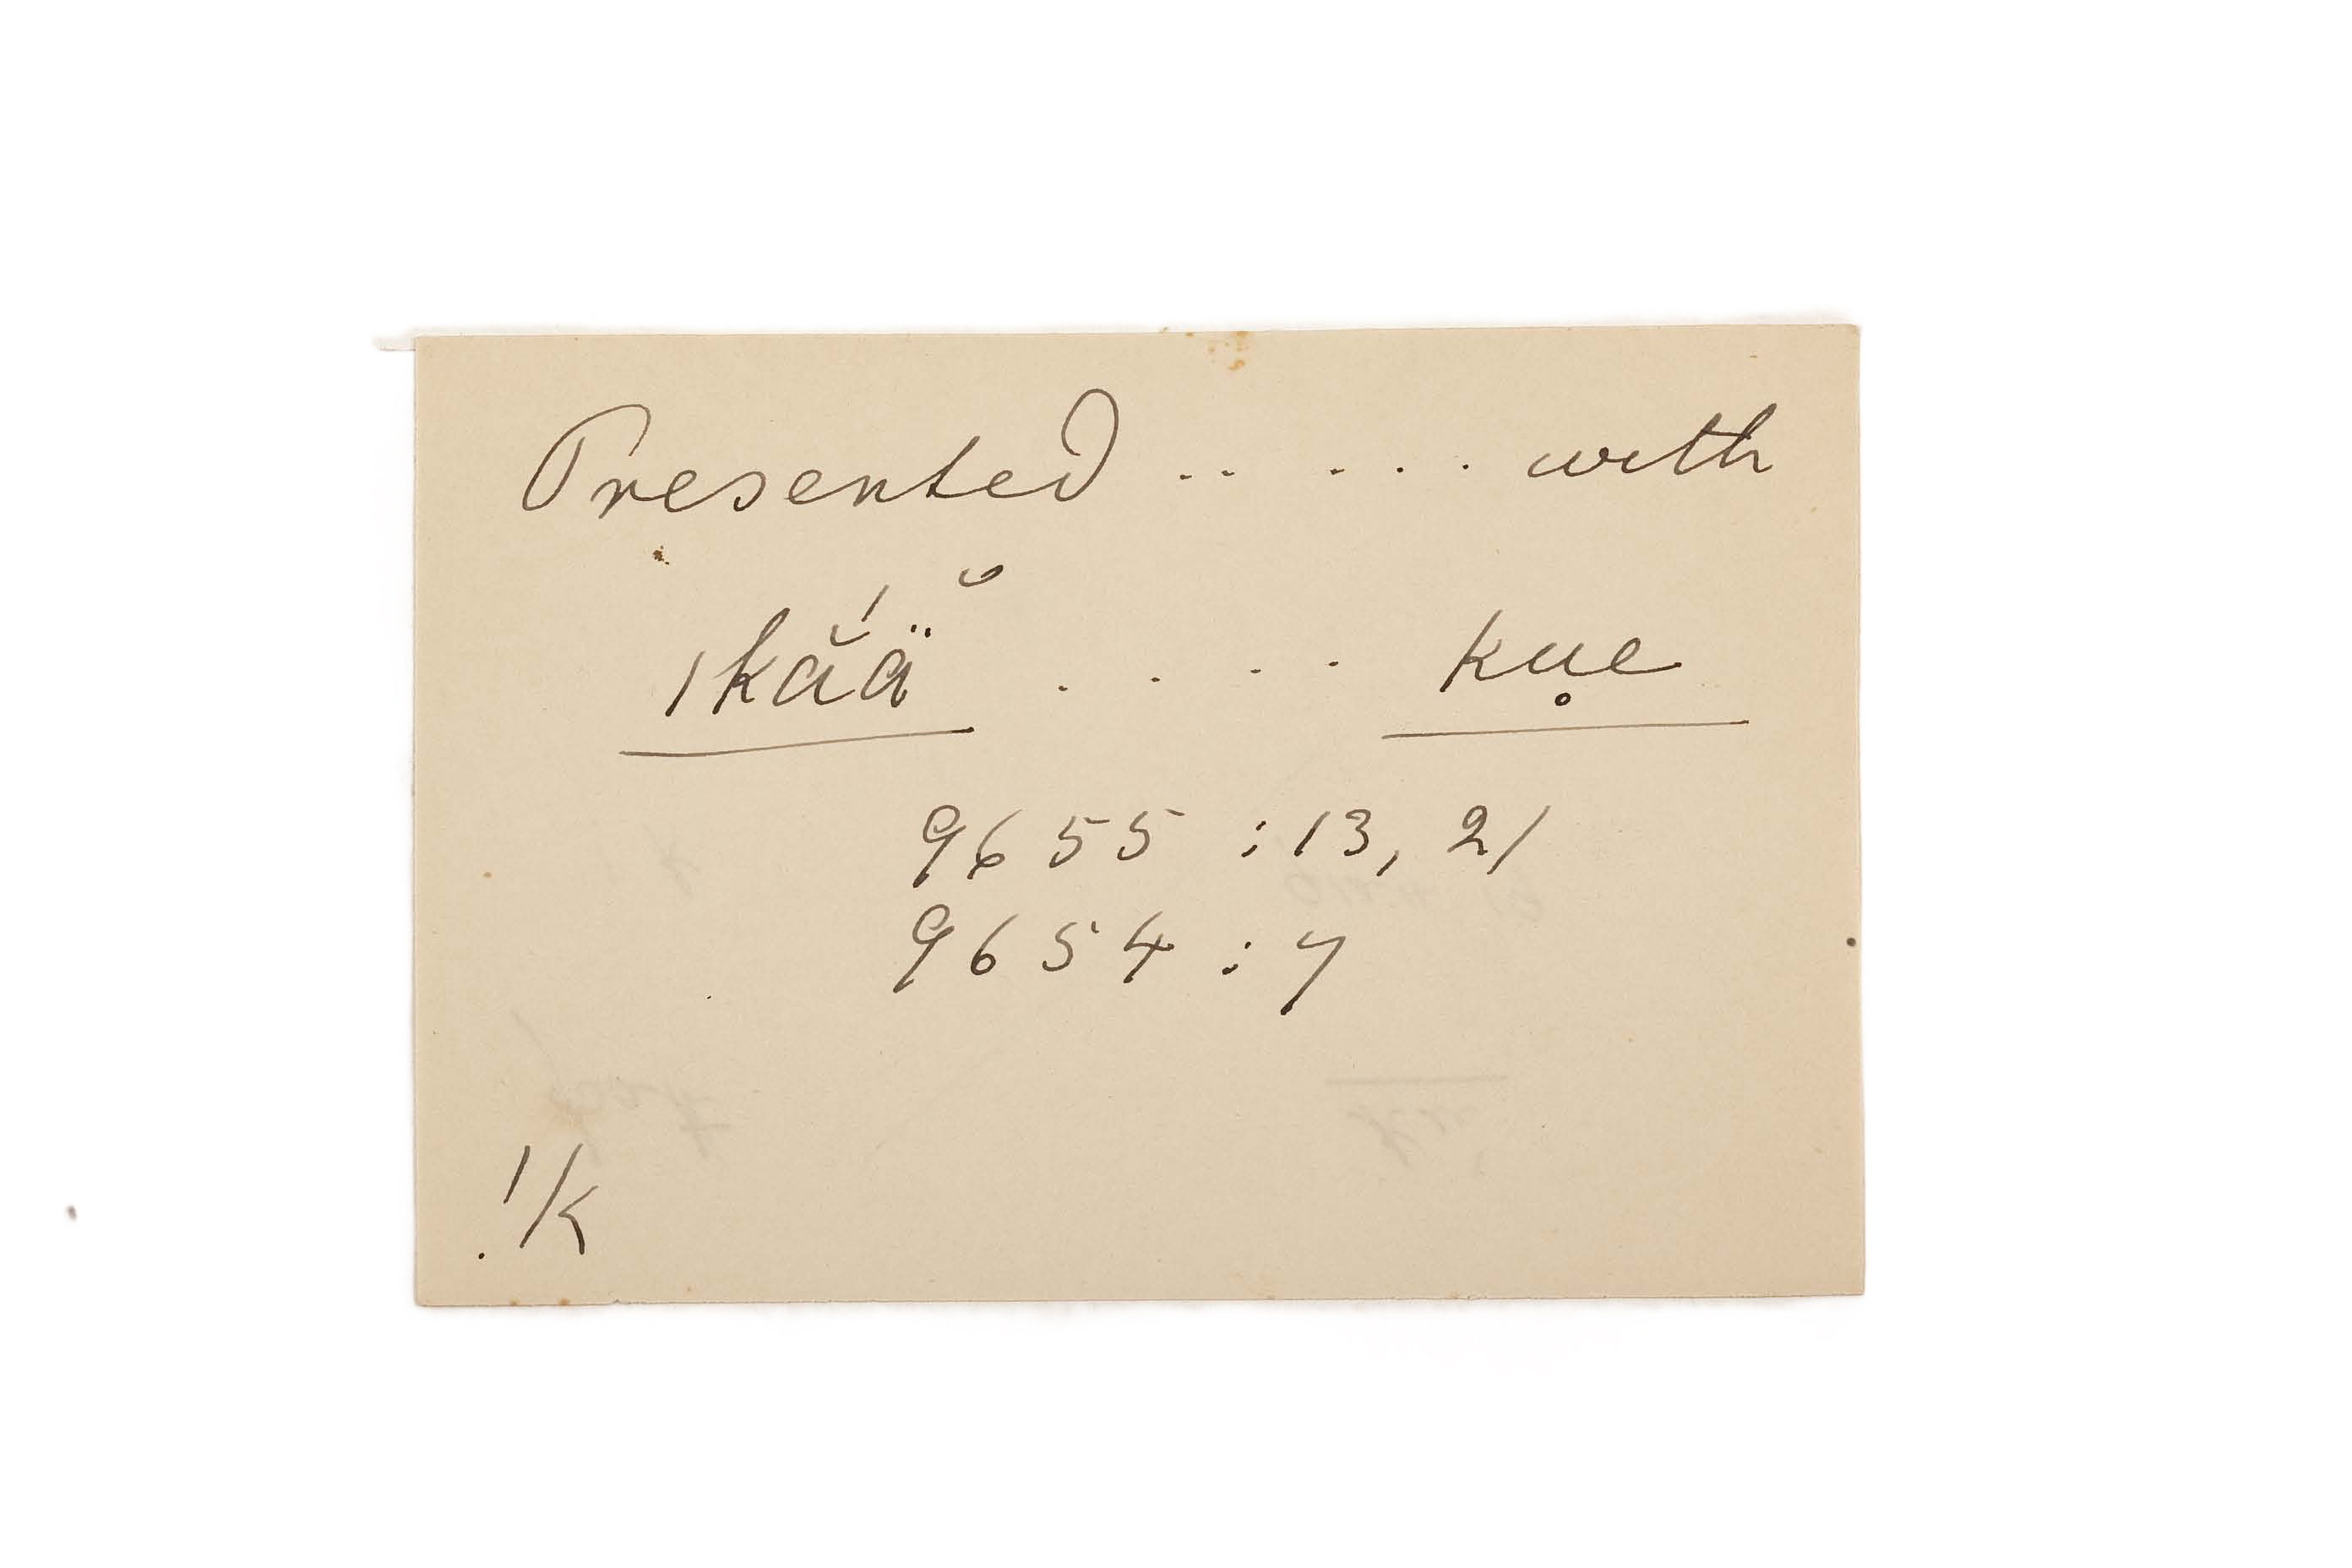 Presented .. ... with
|kắä̆ .... ku̥e
9655 : 13, 21
9654 : 7
!k